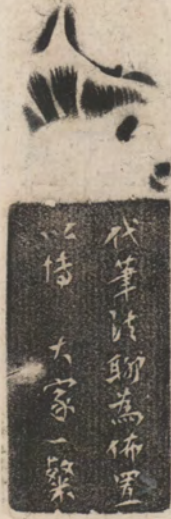 代筆法聊為佈置
以博 大家一粲